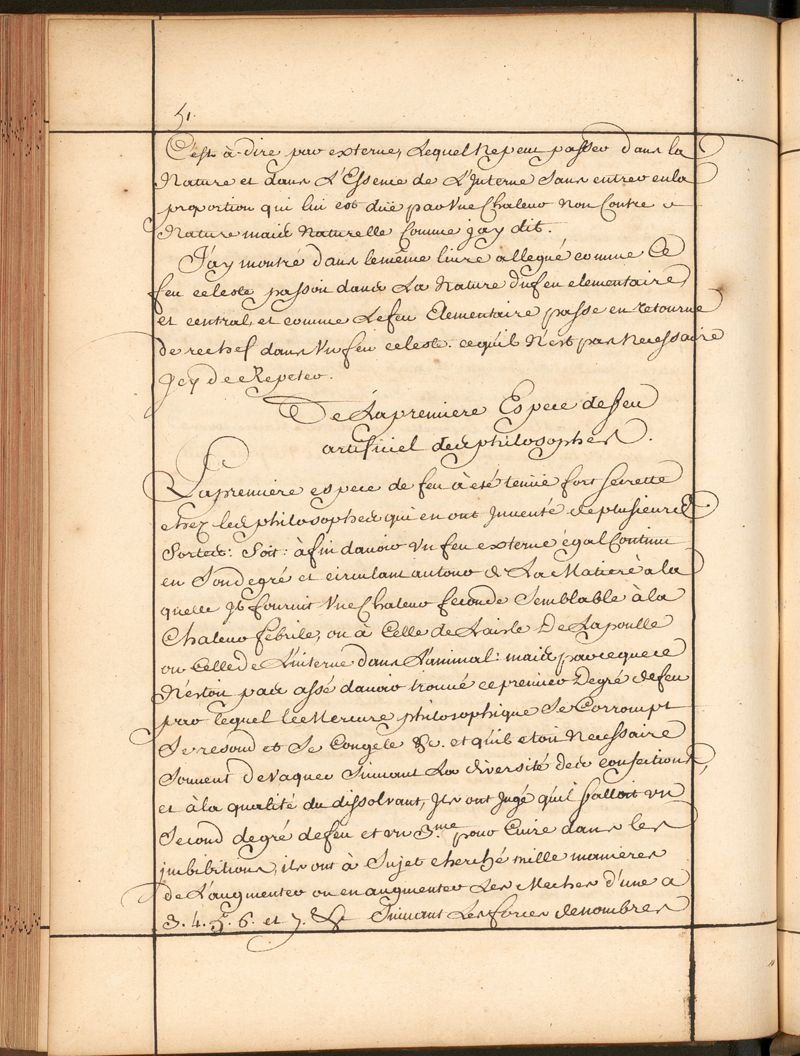 51.
C'est à dire par externe, Lequel Ne peut passer dans la
Nature et dans L'Essence de L'Interne Sans entrer en la
proportion qui lui est düe par Vne Chaleur Non Contre
Nature mais Naturelle Comme j'ay dit.
J'ay montré dans le même livre allegué comme Ce
feu celeste passoit dans La Nature du feu elementaire
et central, et comme Le feu Elementaire passe en retourne
de rechef dans Vn feu celeste. ce qu'il N'est pas Necessaire
Jcy de Repeter.
De La premiere Espece de feu
artificiel des philosophes.
La premiere espece de feu à été tenüe fort secrette
chez les philosophes qui en ont Jnventé de plusieurs
Sortes: Soit: àfin d'avoir Vn feu externe égal Continu
en Son degré et circulant autour de La Matiere à la
quelle Jl fournit Vne Chaleur feconde Semblable à la
Chaleur febrile, ou à Celle de L'airle De La poulle
ou Celle de L'interne dans L'animal: mais parce que ce
N'etoit pas assé d'avoir trouvé ce premier Degré de feu
par lequel le Mercure philosophique Se Corrompt
Se resoud et Se Congele &c. et qu'il etoit Necessaire
Souvent de Vaquer Suivant La diversité des confections,
et à la qualité du dissolvant, Jls ont Jugé qu'il falloit vn
Second degré de feu et vn 3.me pour Cuire dans les
jmbibitions, ils ont à Sujet cherché mille manieres
de L'augmenter ou en augmenter Les Meches d'une a
3. 4. 5. 6. et 7. & Suivant Les forces de nombres